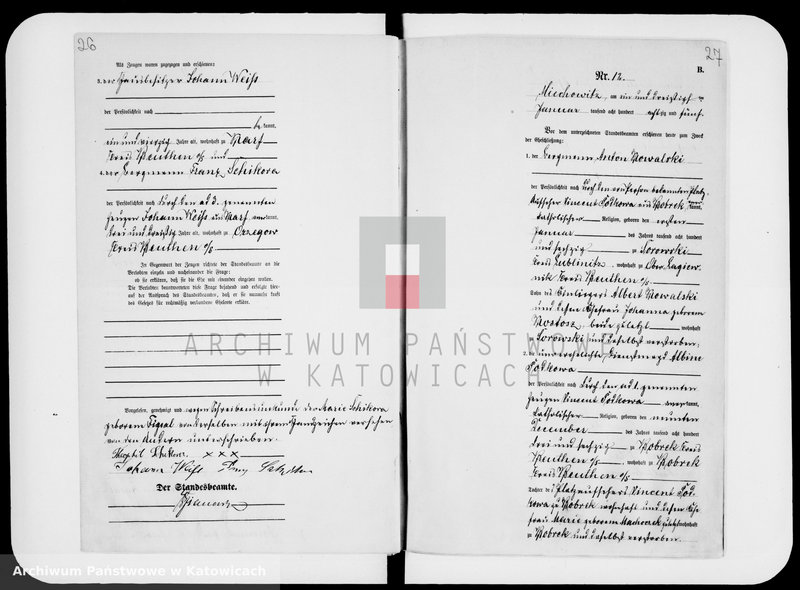 26
Als Zeugen waren zugezogen und erschienen:
3. der Hausbesitzer Johann Weiß
der Persönlichkeit nach
kannt,
ein und vierzig Jahre alt, wohnhaft zu Karf
Kreis Beuthen O/S und
4. der Bergmann Franz Schikora
der Persönlichkeit nach durch den ad 3. genannten
Zeugen Johann Weiß aus Karf anerkannt,
drei und dreißig Jahre alt, wohnhaft zu Orzegow
Kreis Beuthen O/S
In Gegenwart der Zeugen richtete der Standesbeamte an die
Verlobten einzeln und nacheinander die Frage:
ob sie erklären, daß sie die Ehe mit einander eingehen wollen.
Die Verlobten beantworteten diese Frage bejahend und erfolgte hier-
auf der Ausspruch des Standesbeamten, daß er sie nunmehr kraft
des Gesetzes für rechtmäßig verbundene Eheleute erkläre.
Vorgelesen, genehmigt und wegen Schreibensunkunde der Marie Schikora
geborenen von derselben mit ihrem Handzeichen versehen
von den Andern unterschrieben.
x x x
Johann Weiß Franz
Der Standesbeamte.
27
B.
Nr. 12.
Miechowitz, am ein und dreißigsten
Januar tausend acht hundert achtzig und fünf.
Vor dem unterzeichneten Standesbeamten erschienen heute zum Zweck
der Eheschließung:
1. der Bergmann Anton Kowalski
der Persönlichkeit nach durch den von Person bekannten Platz-
aufseher Vincent Todkowa aus Bobrek anerkannt,
katholischer Religion, geboren den ersten
Januar des Jahres tausend acht hundert
und sechzig zu Sorowski
Kreis Lublinitz, wohnhaft zu Ober Lagiew-
nik Kreis Beuthen O/S.
Sohn des Einliegers Albert Kowalski
und dessen Ehefrau Johanna geborenen
beide zuletzt wohnhaft
Sorowski und daselbst verstorben.
2. die unverehelichte Dienstmagd Albine
Todkowa
der Persönlichkeit nach durch den ad 1. genannten
Zeugen Vincent Todkowa anerkannt,
katholischer Religion, geboren den neunten
December des Jahres tausend acht hundert
drei und sechzig zu Bobrek Kreis
Beuthen O/S, wohnhaft zu Bobrek
Kreis Beuthen O/S
Tochter des Platzaufsehers Vincent Tod-
kowa zu Bobrek wohnhaft und dessen Ehe-
frau Marie geborenen zuletzt wohnhaft
zu Bobrek und daselbst verstorben.
ARCHIWUM PAŃSTWOWE
W KATOWICACH
Archiwum Państwowe w Katowicach